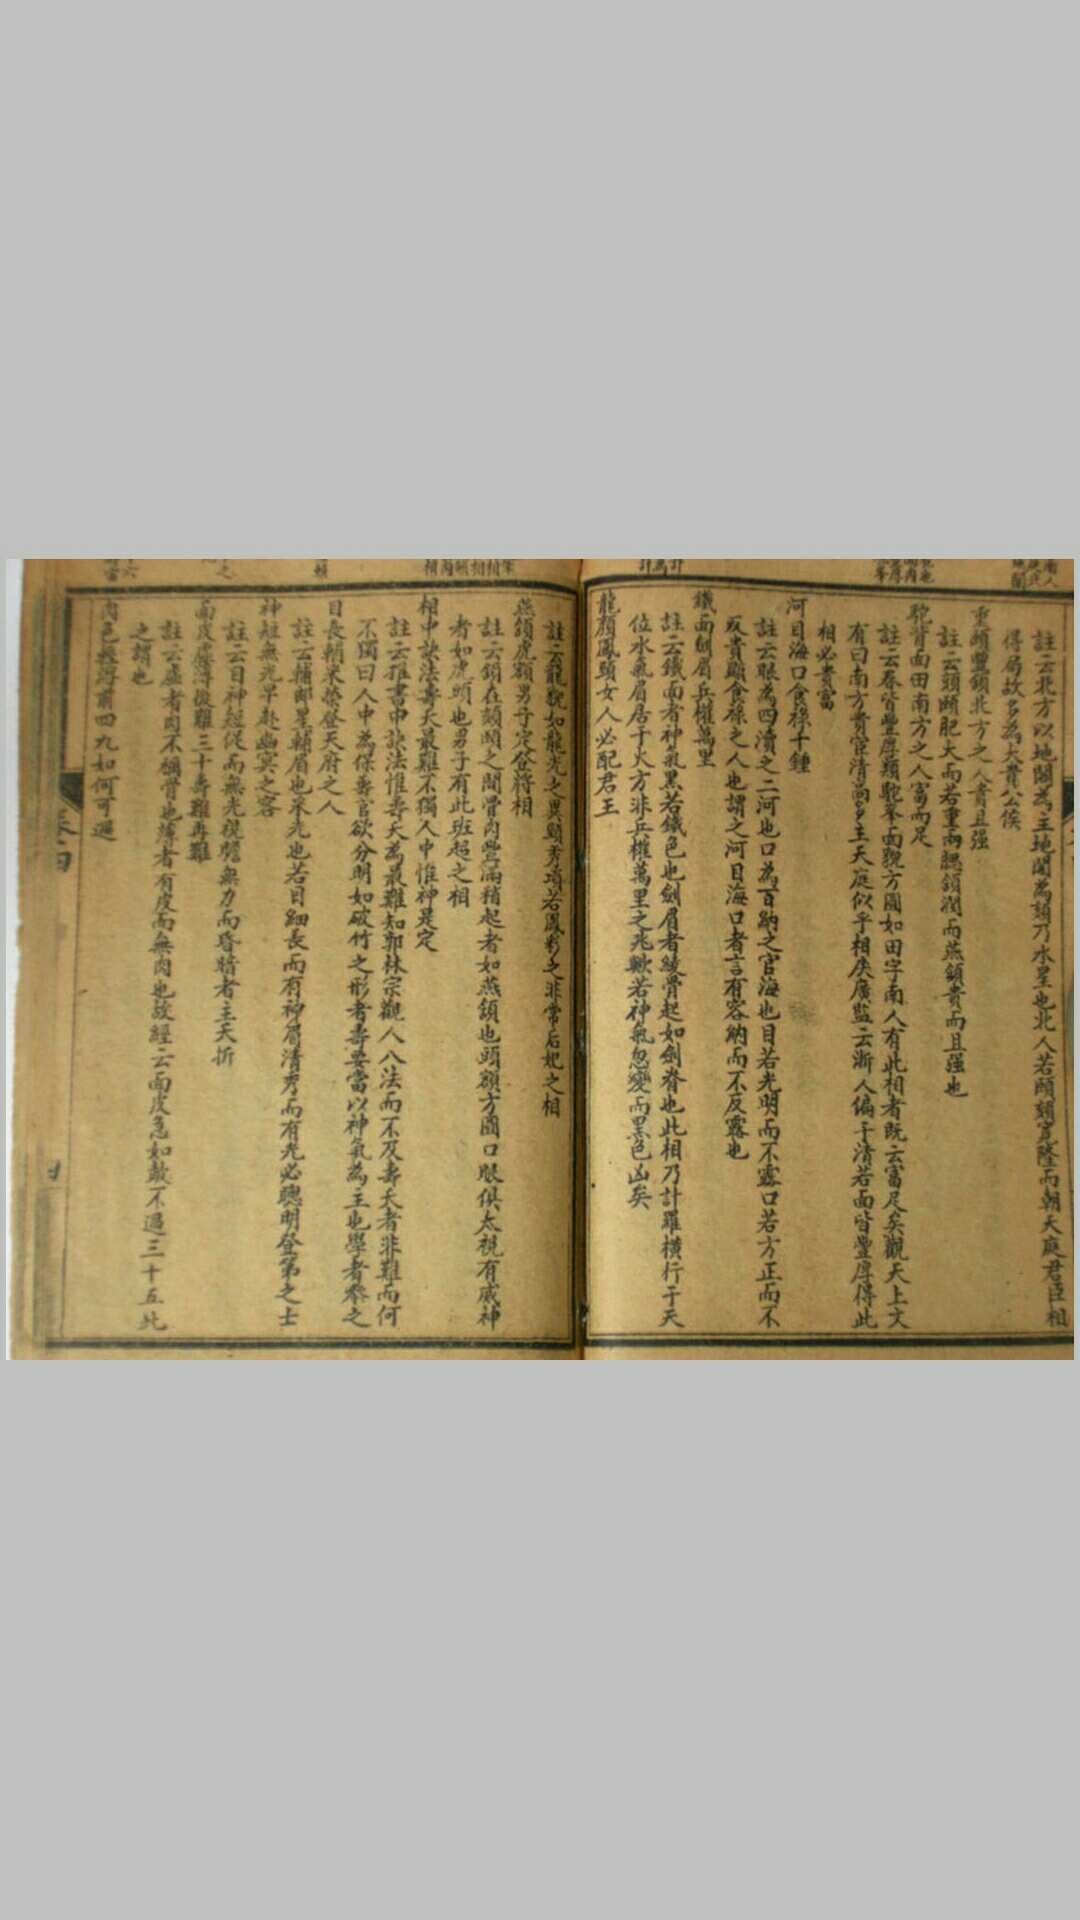 註云北方以地閣為主地閣為頦乃水星也北人若頤頦寬隆而朝天庭君臣相
得局故多為大貴公侯
重頤豐頷北方之人貴且强
註云頭頤肥大而若重兩腮頷潤而燕頷貴而且强也
駝背面田南方之人富而足
註云脊背豐厚類駝峯面貌方圓如田字南人有此相者既云富足矣觀天上文
有曰南方貴宦清高多主天庭似乎相戾廣監云浙人偏于清若面背豐厚得此
相必貴富
河目海口食祿千鍾
註云眼為四瀆之二河也口為百納之官海也目若光明而不露口若方正而不
反貴顯食祿之人也謂之河目海口者言有容納而不反露也
鐵面劍眉兵權萬里
註云鐵面者神氣黑若鐵色也劍眉者綾骨起如劍脊也此相乃計羅橫行于天
位水氣眉居于火方非兵權萬里之兆歟若神氣忽變而黑色凶矣
龍顏鳳頸女人必配君王
註云龍貌如龍光之異頸秀項若鳳彩之非常后妃之相
燕頷虎額男子定登將相
註云頷在頦頤之間骨肉豐滿稍起者如燕頷也頭額方圓口眼俱大視有威神
者如虎頭也男子有此班超之相
相中訣法壽夭最難不獨人中惟神是定
註云推書中訣法惟壽夭為最難知郭林宗觀人八法而不及壽夭者非難而何
不獨曰人中為保壽官欲分明如破竹之形者壽要當以神氣為主也學者叅之
目長輔采榮登天府之人
註云輔即星輔眉也采光也若目細長而有神眉清秀而有光必聰明登第之士
神短無光早赴幽冥之客
註云目神短促而無光視瞻無力而昏暗者主夭折
面皮虛薄後難三十壽難再難
註云虛者肉不稱骨也薄者有皮而無肉也故經云面皮急如皷不過三十五此
之謂也
肉色輕浮前四九如何可過
卷四